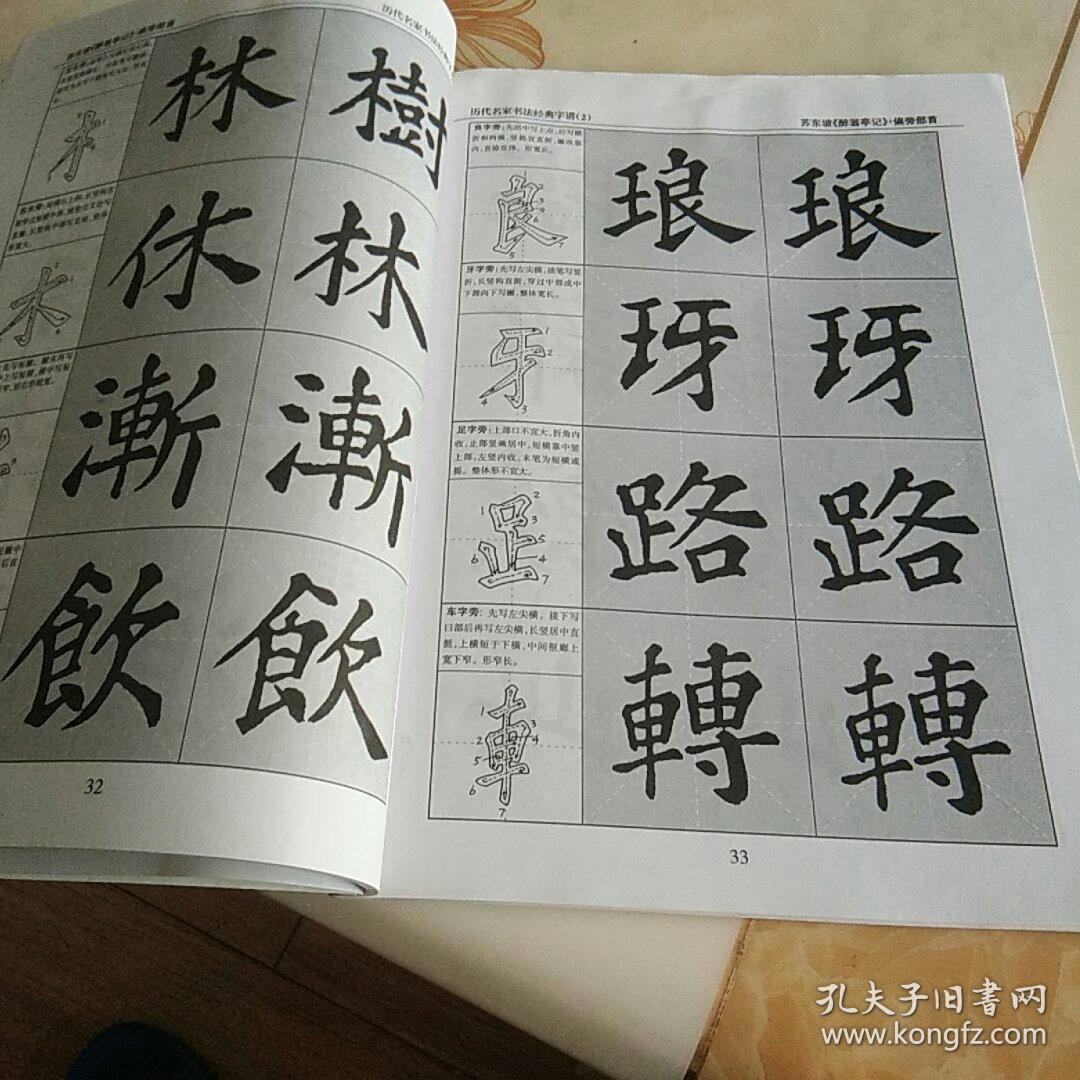 苏东坡《醉翁亭记》·偏旁部首
历代名家书法经典
林 樹
休 林
漸 漸
飲 飲
32
历代名家书法经典字谱(2)
苏东坡《醉翁亭记》·偏旁部首
良字旁:先居中写上点,后写横
折和两横,竖提宜直挺,撇改靠
内,直捺宜伸。形宽长。
琅 琅
牙字旁:先写左尖横,接笔写竖
折,长竖钩直挺,穿过中部或中
下部向下写撇,整体宽长。
玡 玡
足字旁:上部口不宜大,折角内
收,止部竖画居中,短横靠中竖
上部,左竖内收;末笔为短横或
提。整体形不宜大。
路 路
车字旁:先写左尖横,接下写
曰部后再写左尖横,长竖居中直
挺,上横短于下横,中间框廊上
宽下窄。形窄长。
轉 轉
33
孔夫子旧书网
www.kongfz.com